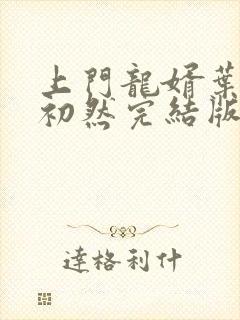 上門龍婿葉
初然完結版
達格利什